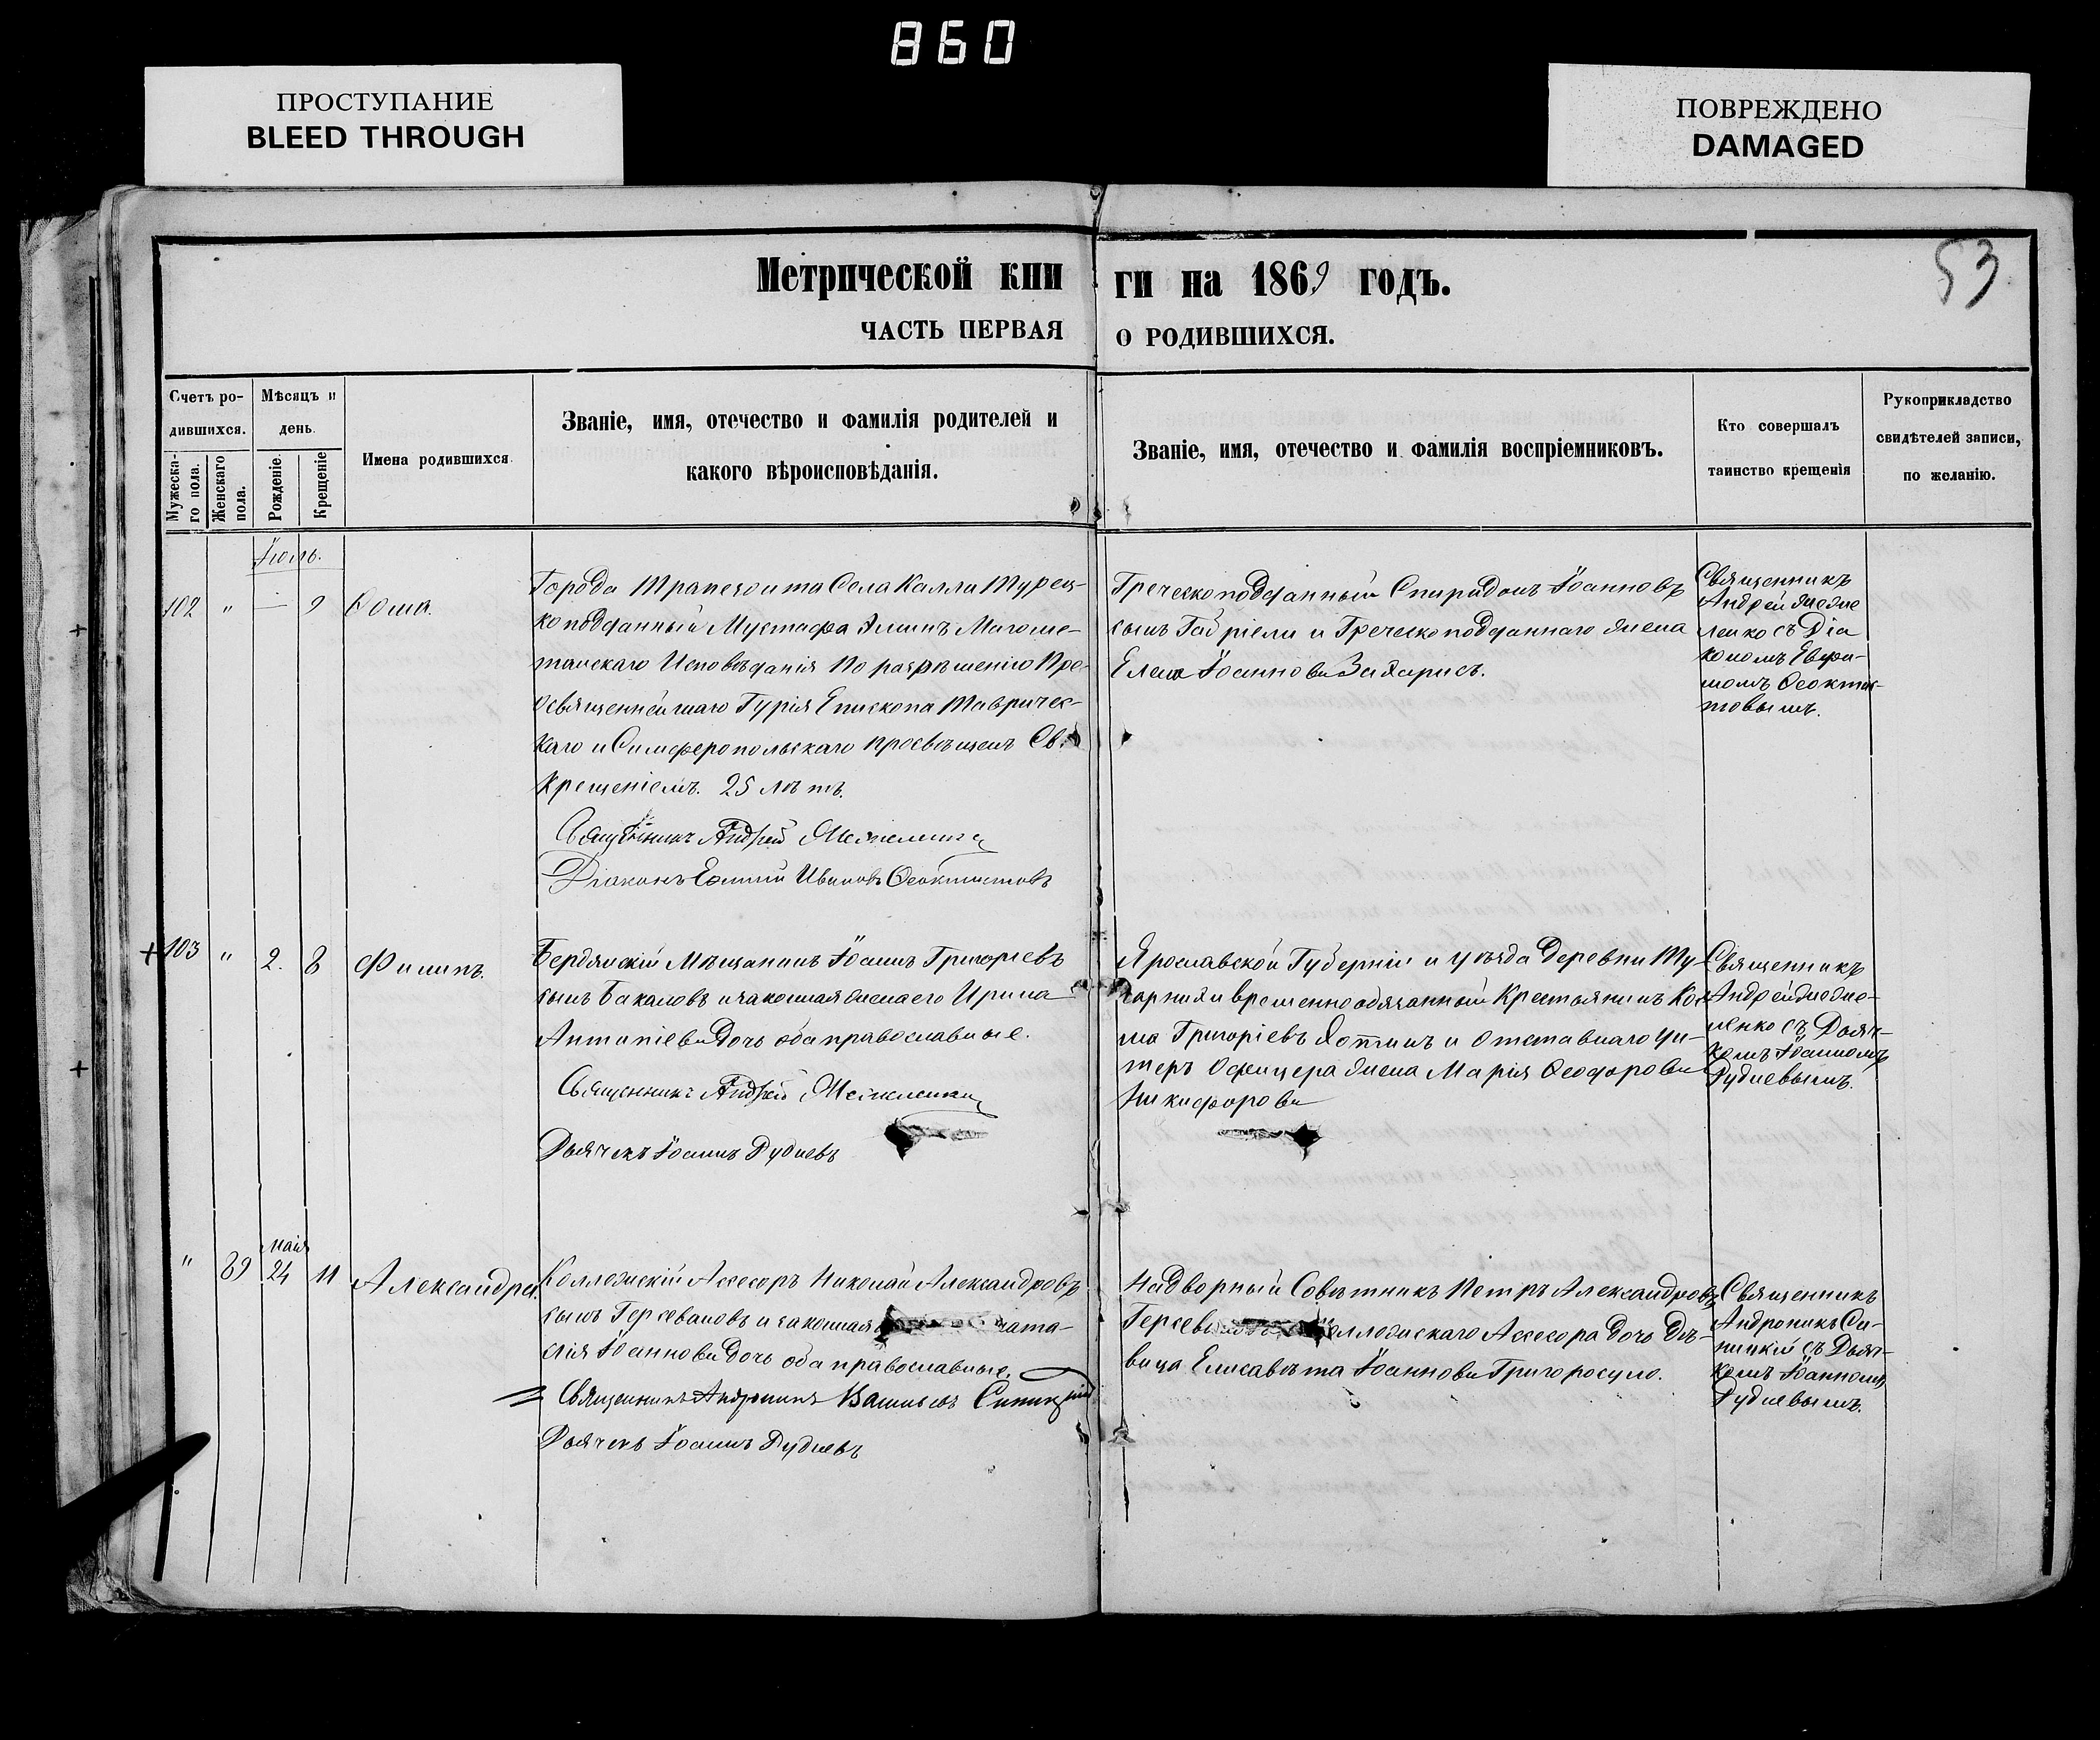 860
ПРОСТУПАНИЕ
BLEED THROUGH
ПОВРЕЖДЕНО
DAMAGED
53
Метрической кни ги на 1869 годъ.
ЧАСТЬ ПЕРВАЯ О РОДИВШИХСЯ.
Счетъ ро-
дившихся.
Мужеска-
го пола.
Женскаго
пола.
Мѣсяцъ и
день.
Рожденіе.
Крещеніе
Имена родившихся
Званіе, имя, отечество и фамилія родителей и
какого вѣроисповѣданія.
Званіе, имя, отечество и фамилія воспріемниковъ.
Кто совершалъ
таинство крещенія
Рукоприкладство
свидѣтелей записи,
по желанію.
Іюль.
102 " — 9 Ѳома.
Города Трапезонта Села Калли Турец-
коподданный Мустафа Эминъ Магоме-
танскаго Исповѣданія По разрѣшенію Пре-
освященнѣйшаго Гурія Епископа Тавричес-
каго и Симферопольскаго просвѣщенъ Св.
Крещеніемъ. 25 лѣтъ.
Священникъ Андрей
Діаконъ Ивановъ Ѳеоктистовъ
Греческоподданный Спиридонъ Іоанновъ
сынъ Габріели и Греческоподданнаго жена
Елена Іоаннова
Священникъ
Андрей
ленко съ Діа
кономъ Евфи-
момъ Ѳеоктис-
товымъ.
103 " 2. 8 Филипъ.
Бердянскій Мѣщанинъ Іоаннъ Григорьевъ
сынъ Бакаловъ и законная жена его Ирина
Антоніева дочь оба православные.
Священникъ Андрей
Дьячекъ Іоаннъ Рудневъ
Ярославской Губерніи и уѣзда Деревни
временнообязанный Крестьянинъ
ма Григоріевъ и Отставнаго Ун-
теръ Офицера жена Марія Ѳеодорова
Никифорова
Священникъ
Андрей
ленко съ Дьяч-
комъ Іоанномъ
Рудневымъ.
Мая
" 89 24 11 Александра.
Коллежскій Ассесоръ Николай Александровъ
сынъ Герсевановъ и законная Ната-
лія Іоаннова дочь оба православные.
Священникъ Андроникъ Синицкій
Дьячекъ Іоаннъ Рудневъ
Надворный Совѣтникъ Петръ Александровъ
Герсевановъ Коллежскаго Ассесора дочь Дѣ-
вица Елисавета Іоаннова Григоросуло.
Священникъ
Андроникъ Си-
ницкій съ Дьяч-
комъ Іоанномъ
Рудневымъ.